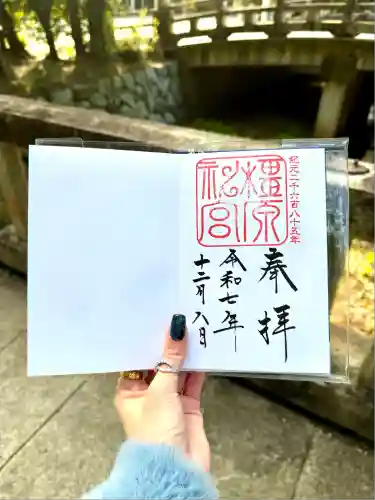 紀元二千六百八十五年
橿原神宮
奉拝
令和七年
十二月八日